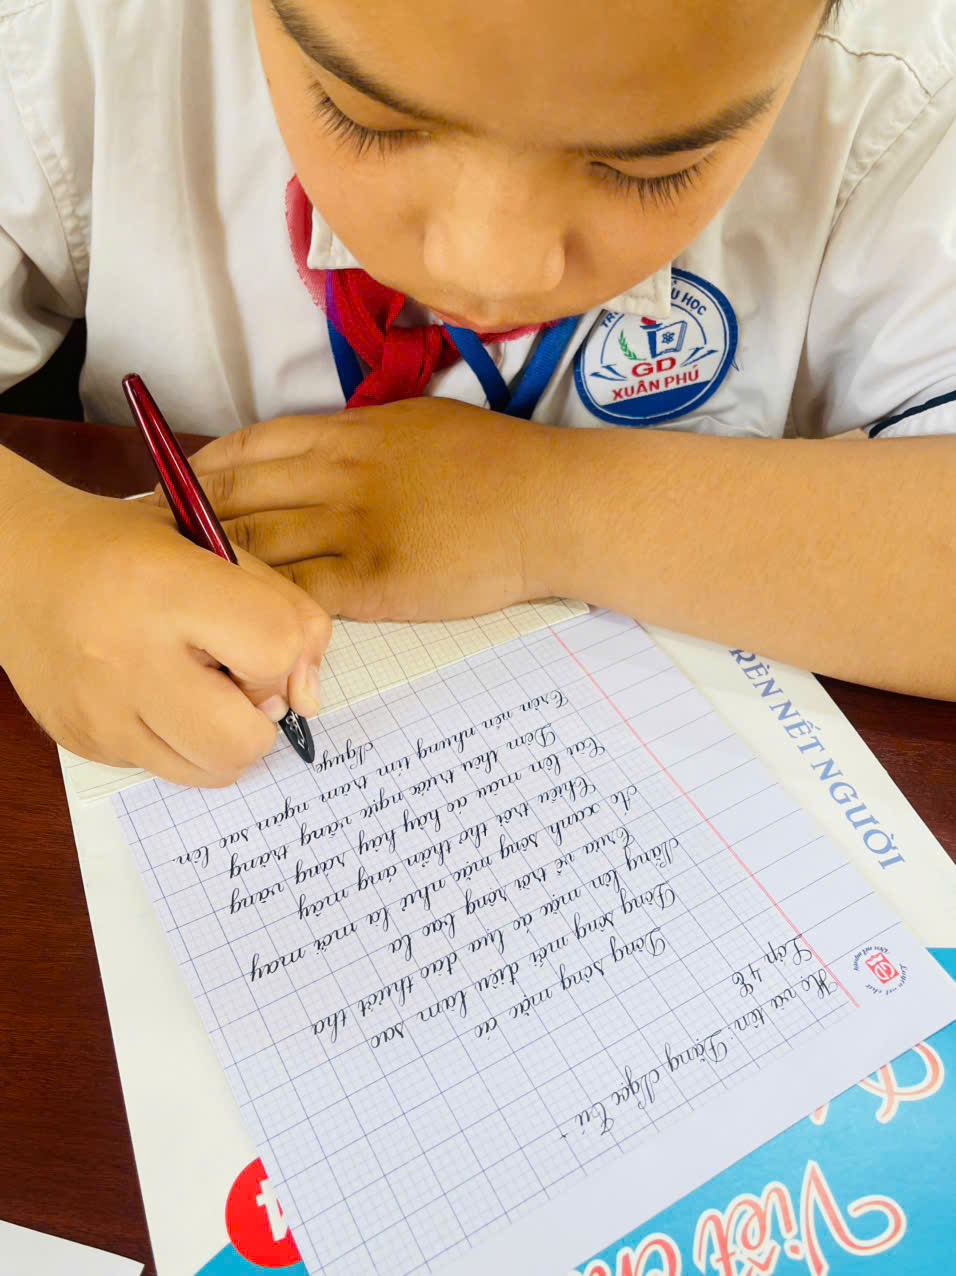 TIỂU HỌC
GD
XUÂN PHÚ
Họ và tên: Đặng Ngọc Tú
Lớp 4E
Dòng sông mặc áo
Dòng sông mới điệu làm sao
Nắng lên mặc áo lụa đào thướt tha
Trưa về trời rộng bao la
Áo xanh sông mặc như là mới may
Chiều trôi thơ thẩn áng mây
Cài lên màu áo hây hây ráng vàng
Đêm thêu trước ngực vầng trăng
Trên nền nhung tím trăm ngàn sao lên.
Nguyễ
Luyện nét chữ
Rèn nết người
RÈN NẾT NGƯỜI
Việt
4